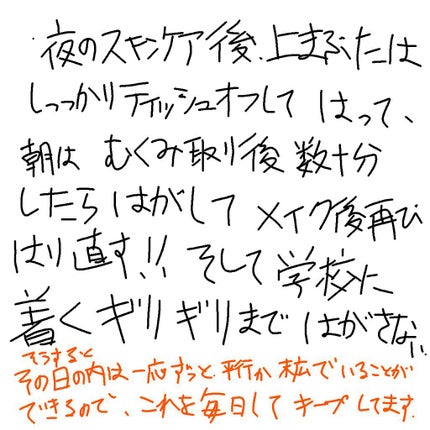 夜のスキンケア後、上まぶたは
しっかりティッシュオフして はって、
朝は むくみ取り後 数十分
したら はがして メイク後再び
はり直す!! そして 学校に
着く ギリギリまで はがさない
そうすると
その日の内は一応ずっと平行か末広でいることが
できるので、これを毎日して キープしてます.